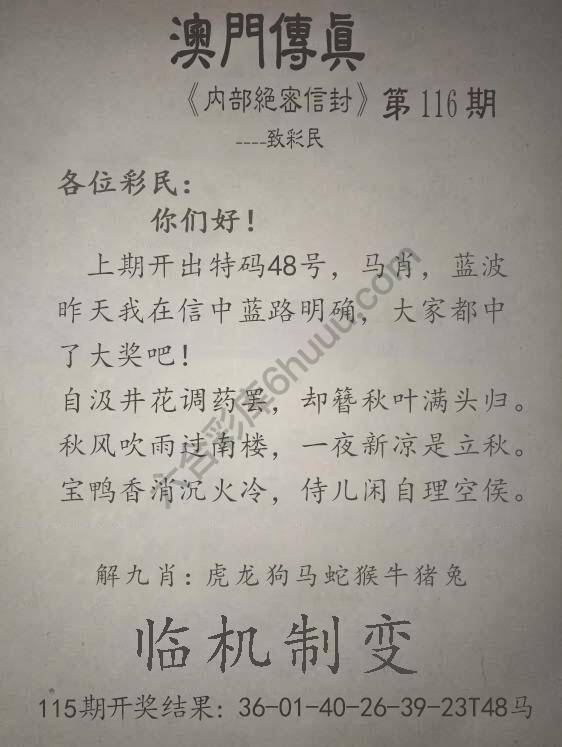 澳門傳真
《内部絕密信封》第116期
----致彩民
各位彩民：
你们好！
上期开出特码48号，马肖，蓝波
昨天我在信中蓝路明确，大家都中
了大奖吧！
自汲井花调药罢，却簪秋叶满头归。
秋风吹雨过南楼，一夜新凉是立秋。
宝鸭香消沉火冷，侍儿闲自理空侯。
解九肖：虎龙狗马蛇猴牛猪兔
临机制变
115期开奖结果：36-01-40-26-39-23T48马
六合彩库6huuu.com